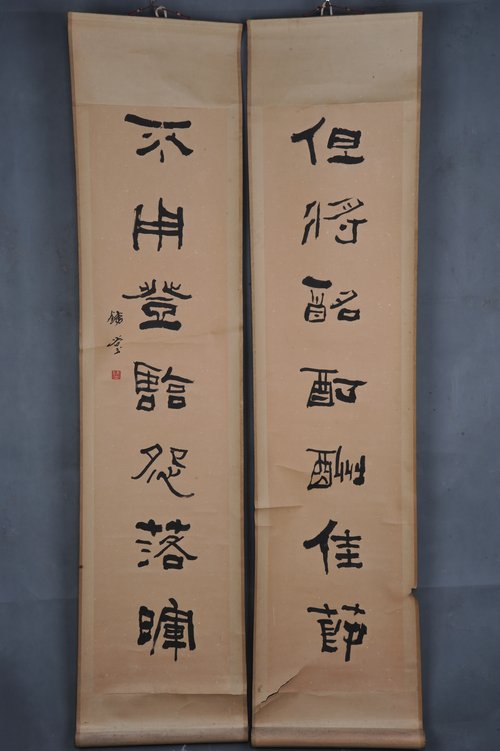 但將酩酊酬佳節
不用登臨怨落暉